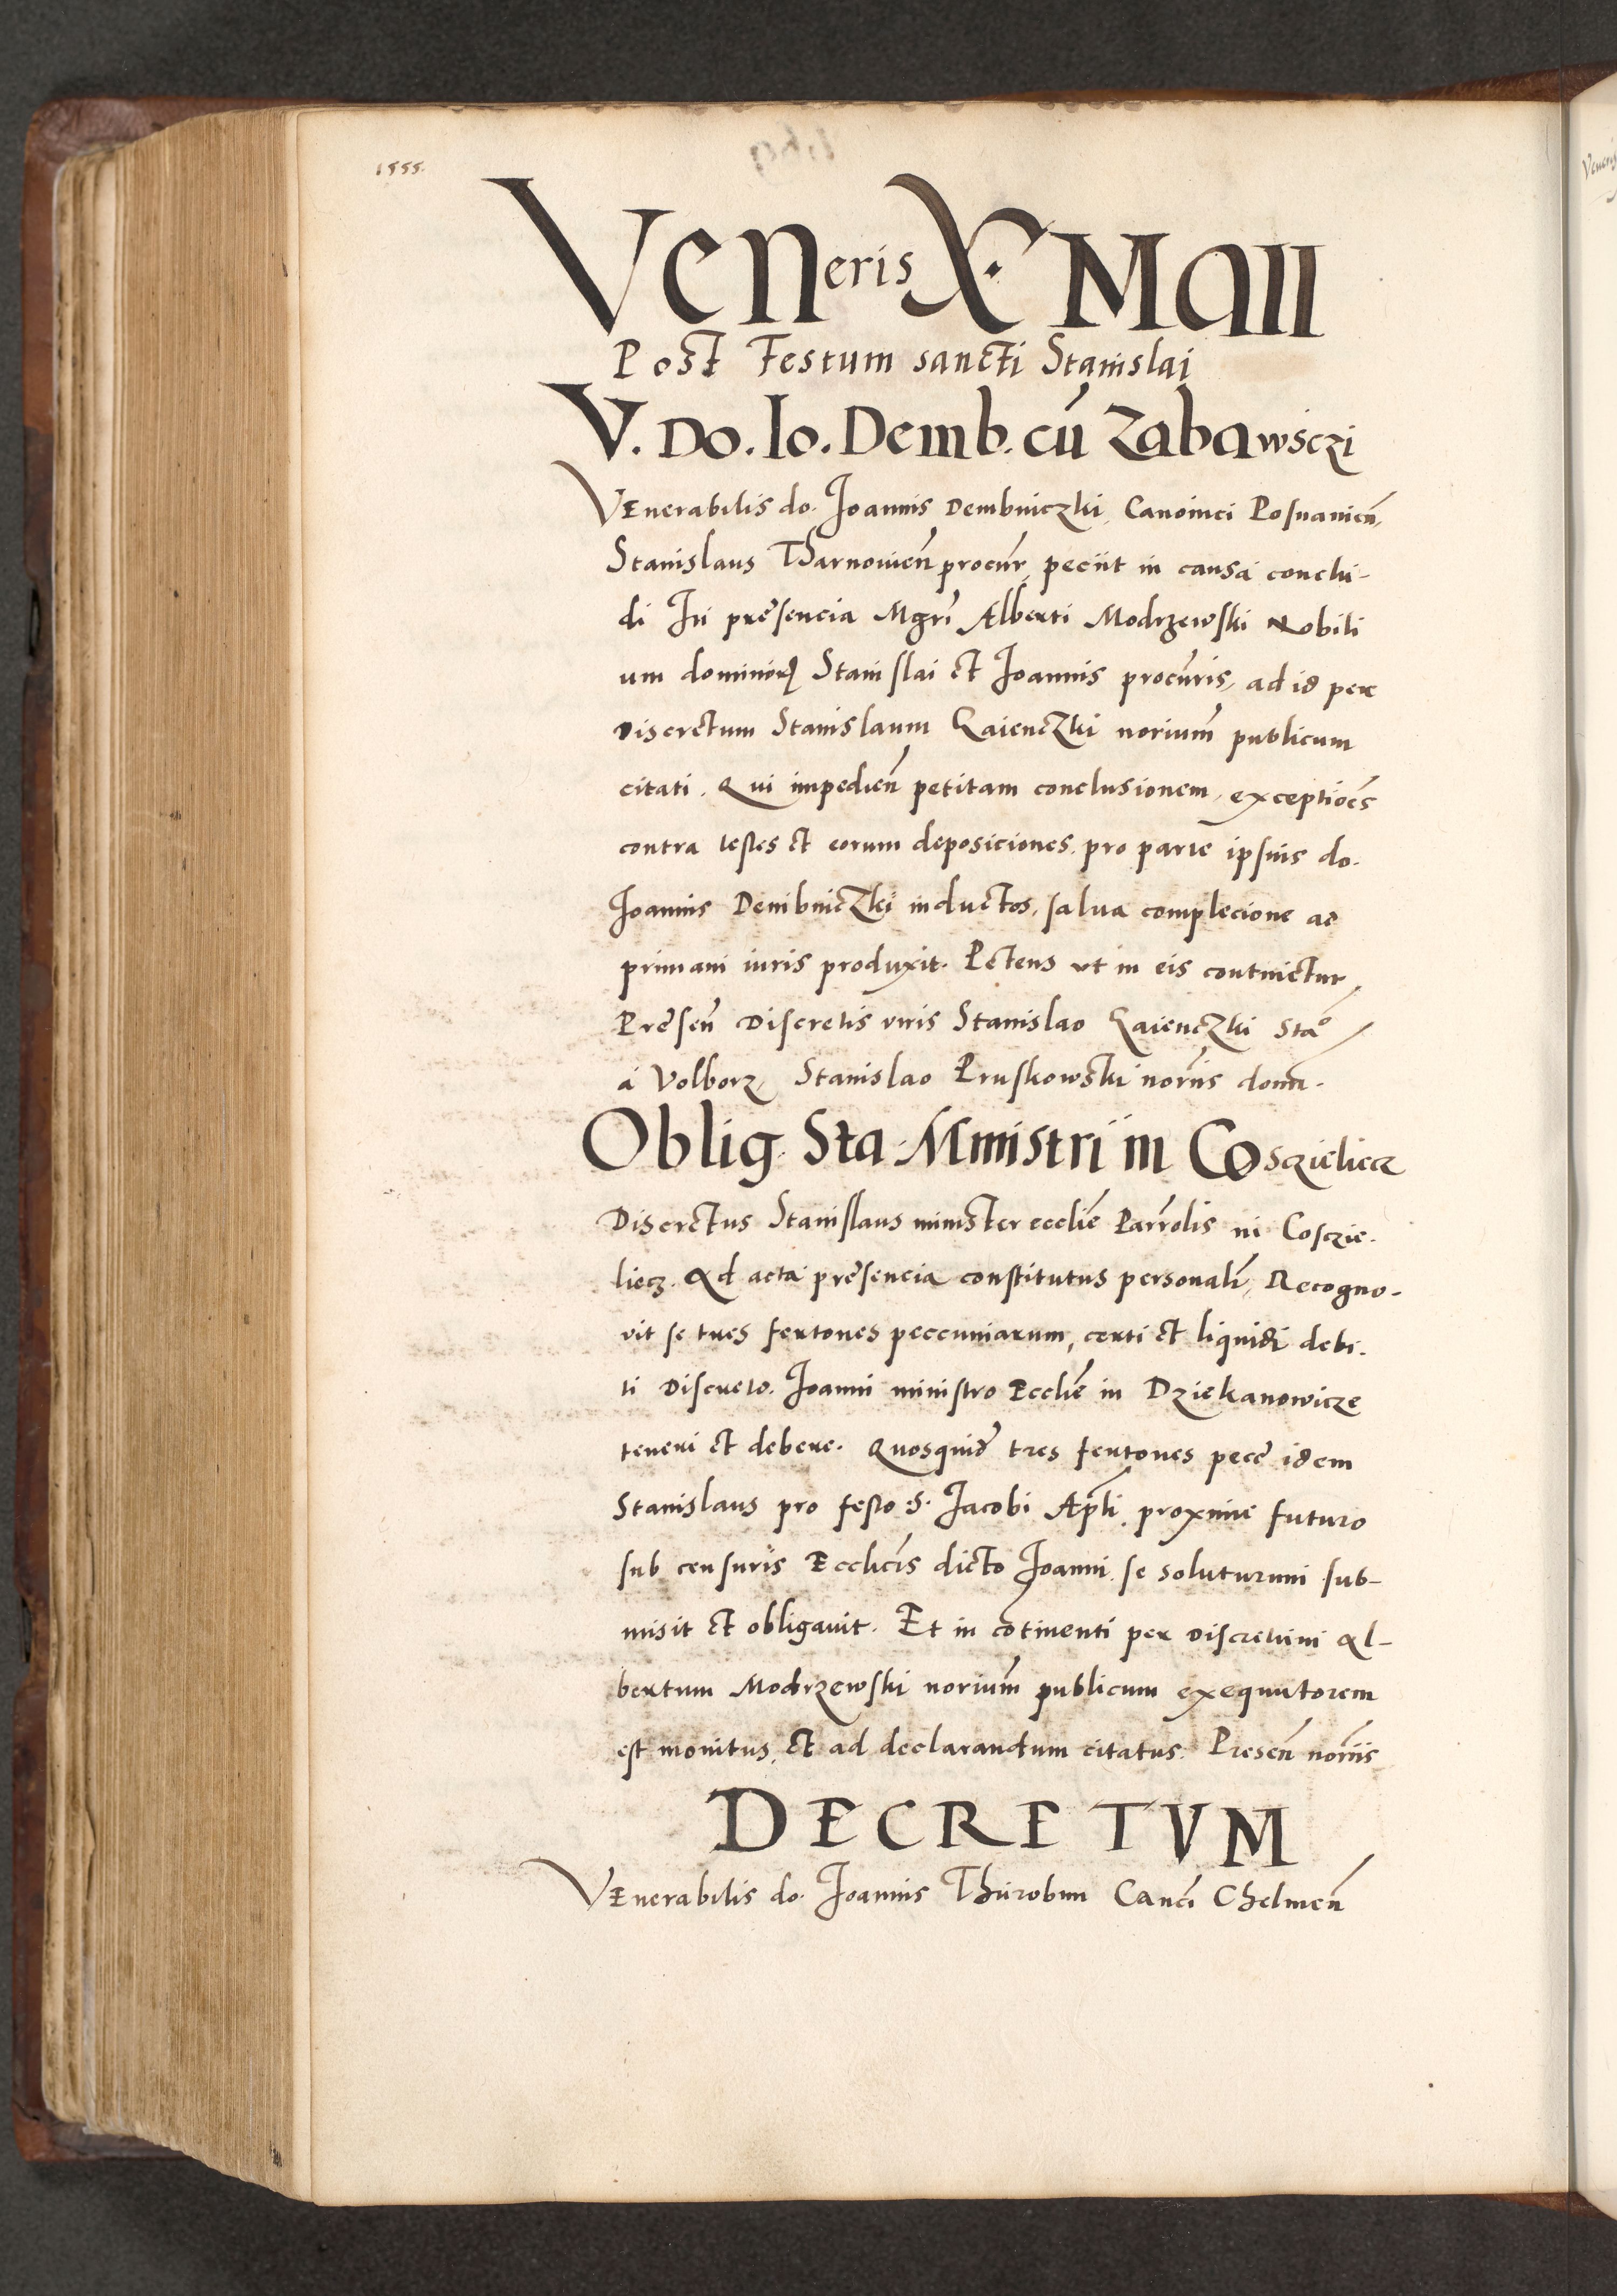 1555.
Veneris X Maii
Post Festum sancti Stanislai
V. Do. Io. Demb. cū Zabawsczi
VEnerabilis do. Joannis Dembniczki, Canonici Posnanień,
Stanislaus Tharnowień procur̄, peciit in causa conclu-
di In presencia Mgr̄i Alberti Modrzewski Nobili
um dominoꝝ Stanislai et Joannis procur̄is, ad id per
Discretum Stanislaum Zaienczki noriūm publicum
citati. Qui impedień petitam conclusionem, exceptiōes
contra testes et eorum deposiciones, pro parte ipsius do.
Joannis Dembniczki inductos, salua complecione ac
primam iuris produxit. Petens vt in eis continetur
Presen̄ Discretis viris Stanislao Zaienczki Sta͞o
á Volborz, Stanislao Pruskowski noriis dom̄.
Oblig. Sta. Ministri in Cosczielicz
Discretus Stanislaus minister ecclie͞ Par̄rolis in Cosczie-
liecz. Ad acta presencia constitutus personalr̄, Recogno-
vit se tres fertones peccuniarum, certi et liquidi debi-
ti Discreto. Joanni ministro Ecclie͞ in Dziekanowicze
teneri et debere. Quosquid͞ tres fertones pecc͞ idem
Stanislaus pro festo S. Jacobi Ap̄li proxime futuro
sub censuris Ecclicīs dicto Joanni se soluturum sub-
misit et obligauit. Et in cōtinenti per Discretum Al-
bertum Modrzewski noriūm publicum exequutorem
est monitus, et ad declarandum citatus. Presen̄ nor̄iis
DECRETVM
VEnerabilis do. Joannis Thurobin Canc̄i Chelmen̄